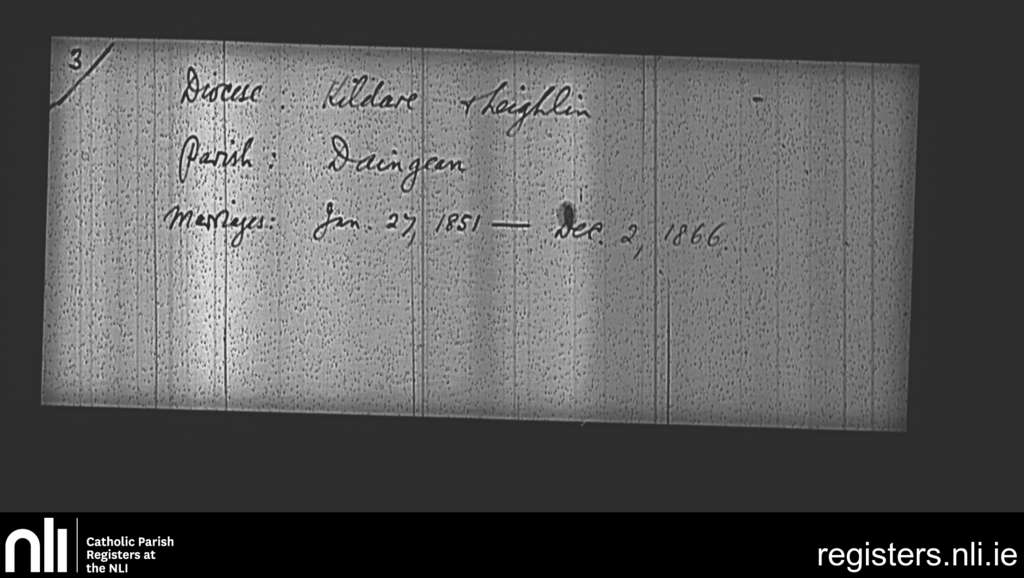 3/
Diocese: Kildare + Leighlin
Parish: Daingean
Marriages: Jan. 27, 1851 — Dec. 2, 1866
nli
Catholic Parish
Registers at
the NLI
registers.nli.ie